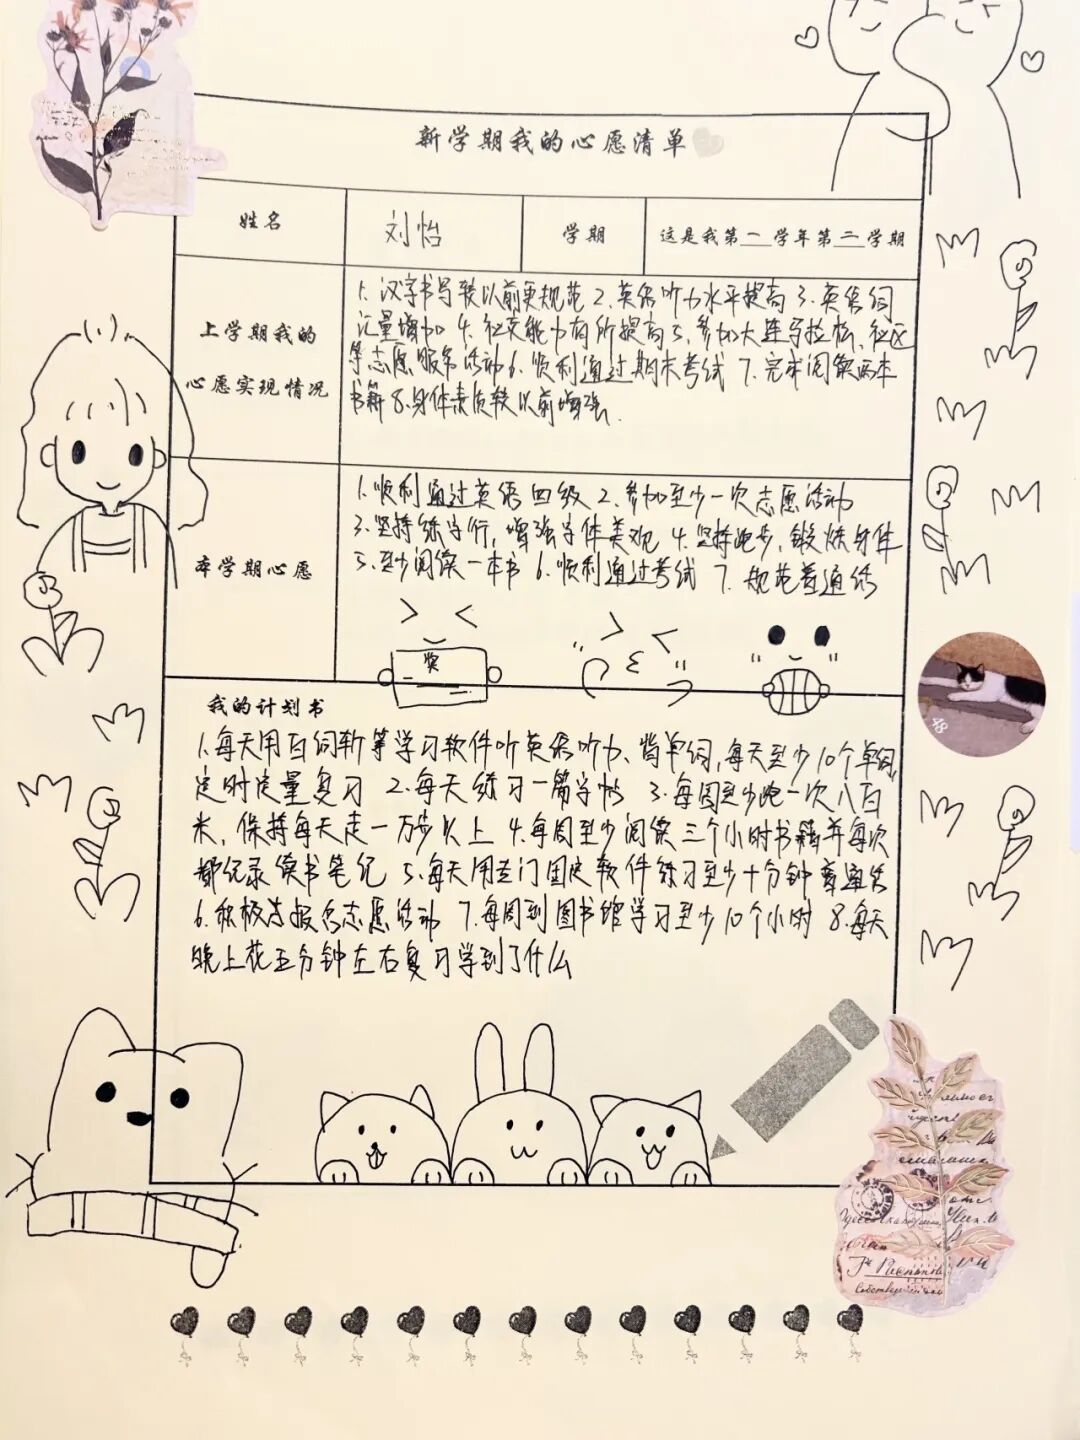 新学期我的心愿清单
姓名 刘怡 学期 这是我第一学年第二学期
上学期我的
心愿实现情况
1. 汉字书写较以前更规范 2. 英语听力水平提高 3. 英语词
汇量增加 4. 社交能力有所提高 5. 参加大连马拉松、社区
等志愿服务活动 6. 顺利通过期末考试 7. 完本阅读两本
书籍 8. 身体素质较以前增强.
本学期心愿
1. 顺利通过英语四级 2. 参加至少一次志愿活动
3. 坚持练字行, 增强字体美观 4. 坚持跑步, 锻炼身体
5. 至少阅读一本书 6. 顺利通过考试 7. 规范普通话
奖
我的计划书
1. 每天用百词斩等学习软件听英语听力、背单词, 每天至少10个单词,
定时定量复习 2. 每天练习一篇字帖 3. 每周至少跑一次八百
米, 保持每天走一万步以上 4. 每周至少阅读三个小时书籍并每次
都纪录读书笔记 5. 每天用专门固定软件练习至少十分钟普通话
6. 积极去报名志愿活动 7. 每周到图书馆学习至少10个小时 8. 每天
晚上花五分钟左右复习学到了什么